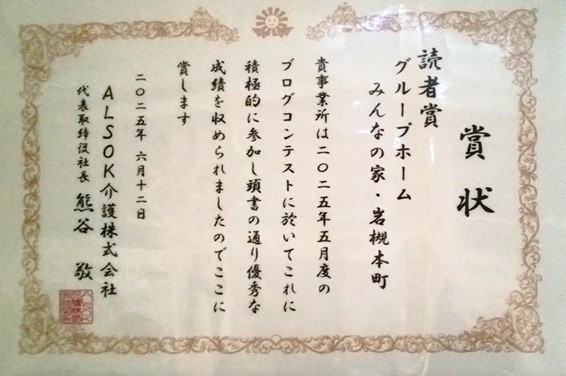 賞状
読者賞
グループホーム
みんなの家・岩槻本町
貴事業所は二〇二五年五月度の
ブログコンテストに於いてこれに
積極的に参加し頭書の通り優秀な
成績を収められましたのでここに
賞します
二〇二五年 六月十二日
ALSOK介護株式会社
代表取締役社長 熊谷 敬